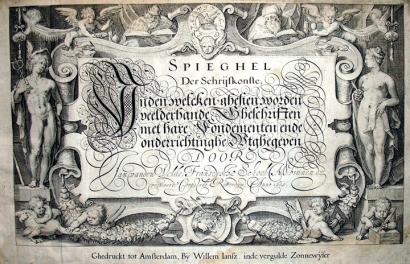 SPIEGHEL
Der Schrijfkonste,
Inden welcken ghesien worden
veelderhande Gheschriften
met hare Fondementen ende
onderrichtinghe Wtghegeven
DOOR
Jan vanden Velde Fransoysche School binnen de
Anno
Ghedruckt tot Amsterdam, By Willem Iansz. inde vergulde Zonnewyser